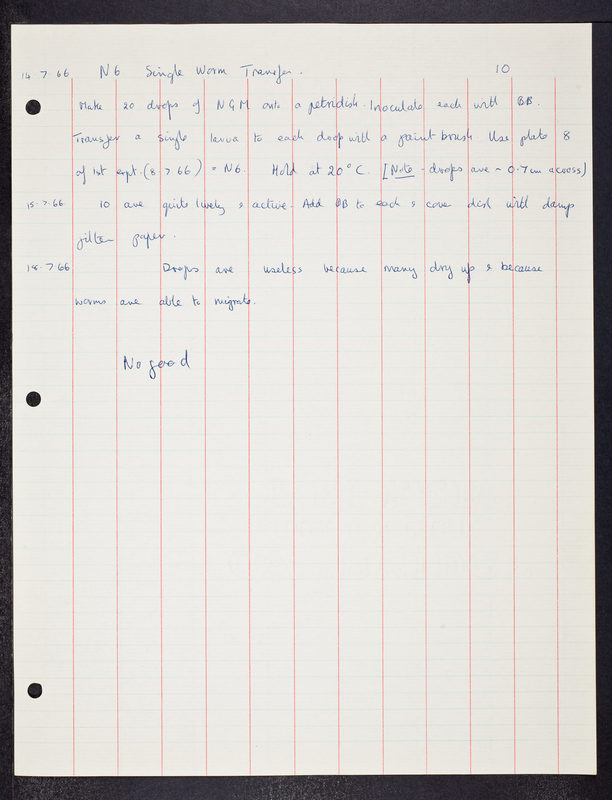 14.7.66 N6 Single Worm Transfer. 10
Make 20 drops of NGM onto a petridish. Inoculate each with BB.
Transfer a single larva to each drop with a paint brush. Use plate 8
of 1st expt. (8.7.66) = N6. Hold at 20°C. [Note - drops are ~ 0.7cm across]
15.7.66 10 are quite lively & active. Add BB to each & cover dish with damp
filter paper.
18.7.66 Drops are useless because many dry up & because
worms are able to migrate.
No good